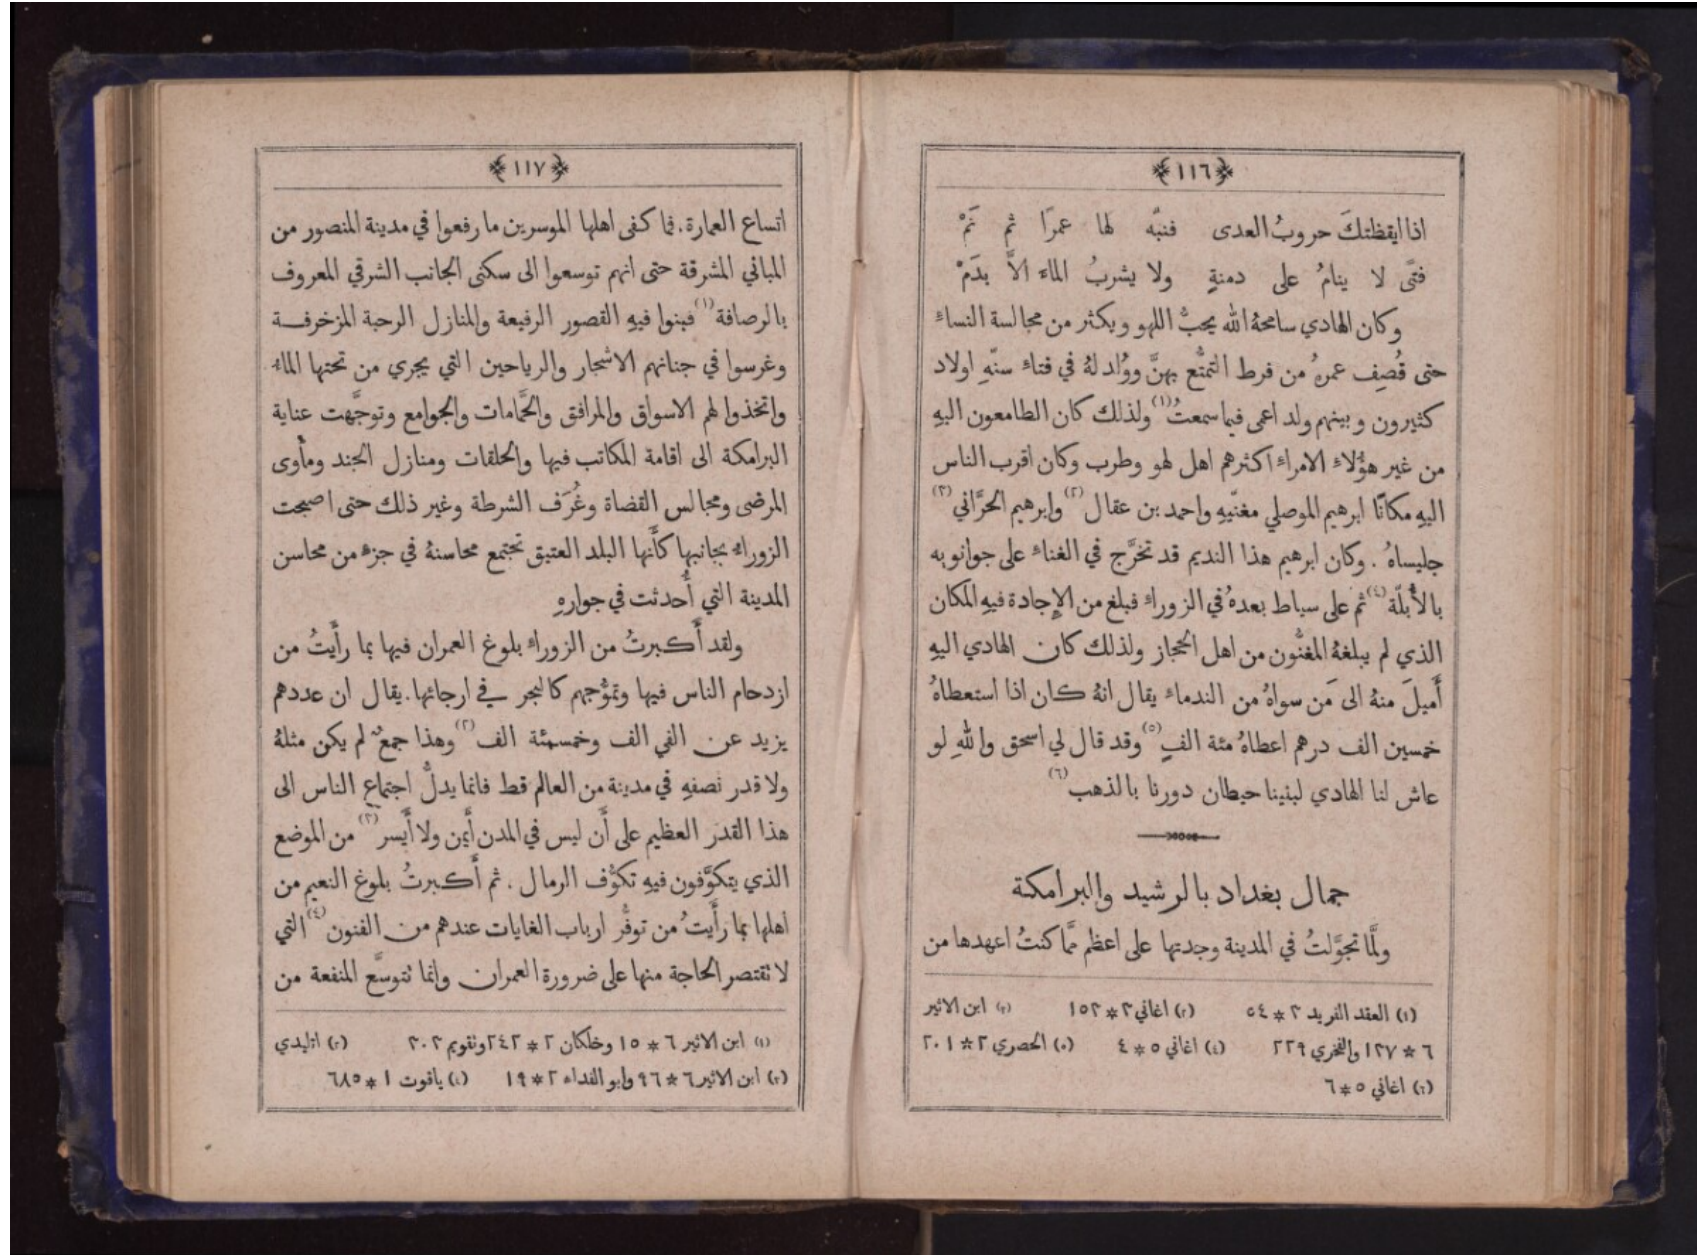 ﴿١١٦﴾
اذا ايقظتكَ حروبُ العدى فنبّه لها عمرًا ثم نَمْ
فتًى لا ينامُ على دمنةٍ ولا يشربُ الماء الاَّ بدَمْ
وكان الهادي سامحهُ الله يحبُّ اللهو ويكثر من مجالسة النساء
حتى قُصِف عمرهُ من فرط التمتُّع بهنَّ ووُلد لهُ في فتاء سنّهِ اولاد
كثيرون وبينهم ولد اعمى فيما سمعتُ(١) ولذلك كان الطامعون اليهِ
من غير هؤُلاء الامراء اكثرهم اهل لهو وطرب وكان اقرب الناس
اليهِ مكانًا ابرهيم الموصلي مغنّيهِ واحمد بن عقال(٢) وابرهيم الحرَّاني(٣)
جليساهُ . وكان ابرهيم هذا النديم قد تخرَّج في الغناء على جوانويه
بالأُبلّة(٤) ثم على سياط بعدهُ في الزوراء فبلغ من الإِجادة فيهِ المكان
الذي لم يبلغهُ المغنُّون من اهل الحجاز ولذلك كان الهادي اليهِ
أَميلَ منهُ الى مَن سواهُ من الندماء يقال انهُ كان اذا استعطاهُ
خمسين الف درهم اعطاهُ مئة الفٍ(٥) وقد قال لي اسحق واللهِ لو
عاش لنا الهادي لبنينا حيطان دورنا بالذهب(٦)
جمال بغداد بالرشيد والبرامكة
ولمَّا تجوَّلتُ في المدينة وجدتها على اعظم ممَّا كنتُ اعهدها من
(١) العقد الفريد ٣*٥٤ (٢) اغاني ٣*١٥٢ (٣) ابن الاثير
٦*١٢٧ والفخري ٢٢٩ (٤) اغاني ٥*٤ (٥) الحصري ٢*٢٠١
(٦) اغاني ٥*٦
﴿١١٧﴾
اتساع العمارة. فما كفى اهلها الموسرين ما رفعوا في مدينة المنصور من
المباني المشرقة حتى انهم توسعوا الى سكنى الجانب الشرقي المعروف
بالرصافة(١) فبنوا فيهِ القصور الرفيعة والمنازل الرحبة المزخرفة
وغرسوا في جنانهم الاشجار والرياحين التي يجري من تحتها الماء
واتخذوا لهم الاسواق والمرافق والحمَّامات والجوامع وتوجَّهت عناية
البرامكة الى اقامة المكاتب فيها والحلقات ومنازل الجند ومأوى
المرضى ومجالس القضاة وغُرَف الشرطة وغير ذلك حتى اصبحت
الزوراء بجانبها كأَنها البلد العتيق تجتمع محاسنهُ في جزء من محاسن
المدينة التي أُحدثت في جوارهِ
ولقد أَكبرتُ من الزوراء بلوغ العمران فيها بما رأَيتُ من
ازدحام الناس فيها وتموُّجهم كالبحر في ارجائها. يقال ان عددهم
يزيد عن الفي الف وخمسمئة الف(٢) وهذا جمعٌ لم يكن مثلهُ
ولا قدر نصفهِ في مدينة من العالم قط فانما يدلُّ اجتماع الناس الى
هذا القدر العظيم على أَن ليس في المدن أَيمن ولا أَيسر(٣) من الموضع
الذي يتكوَّفون فيهِ تكوُّف الرمال . ثم أَكبرتُ بلوغ النعيم من
اهلها بما رأَيتُ من توفُّر ارباب الغايات عندهم من الفنون(٤) التي
لا تقتصر الحاجة منها على ضرورة العمران وانما تتوسَّع المنفعة من
(١) ابن الاثير ٦*١٥ وخلكان ٢*٢٤٢ وتقويم ٣٠٢ (٢) اتليدي
(٣) ابن الاثير ٦*٩٦ وابو الفداء ٢*١٩ (٤) ياقوت ١*٦٨٥